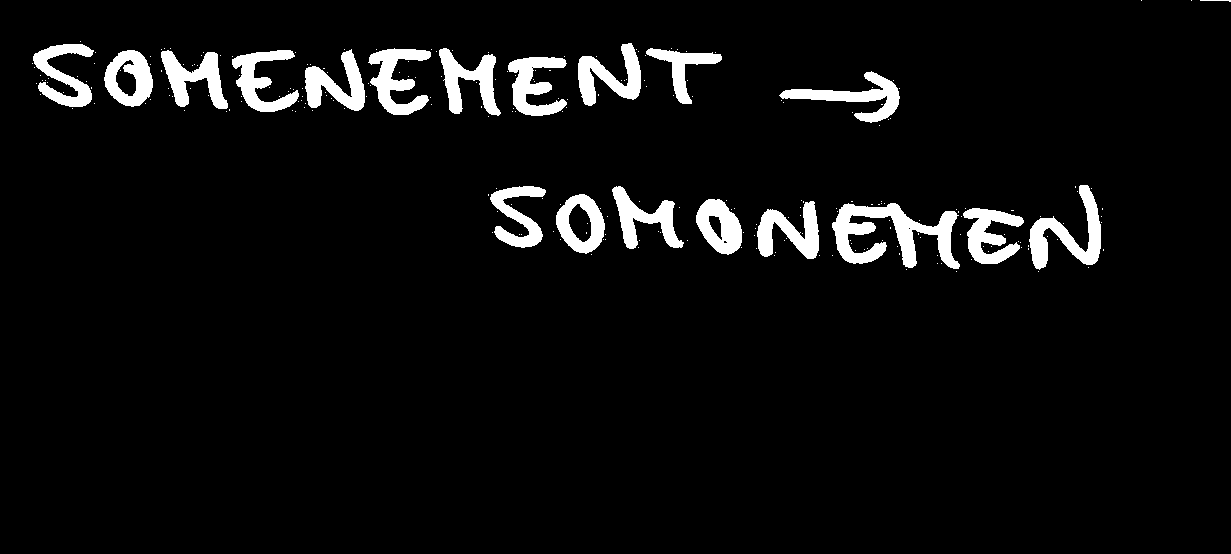 SOMENEMENT →
SOMONEMEN